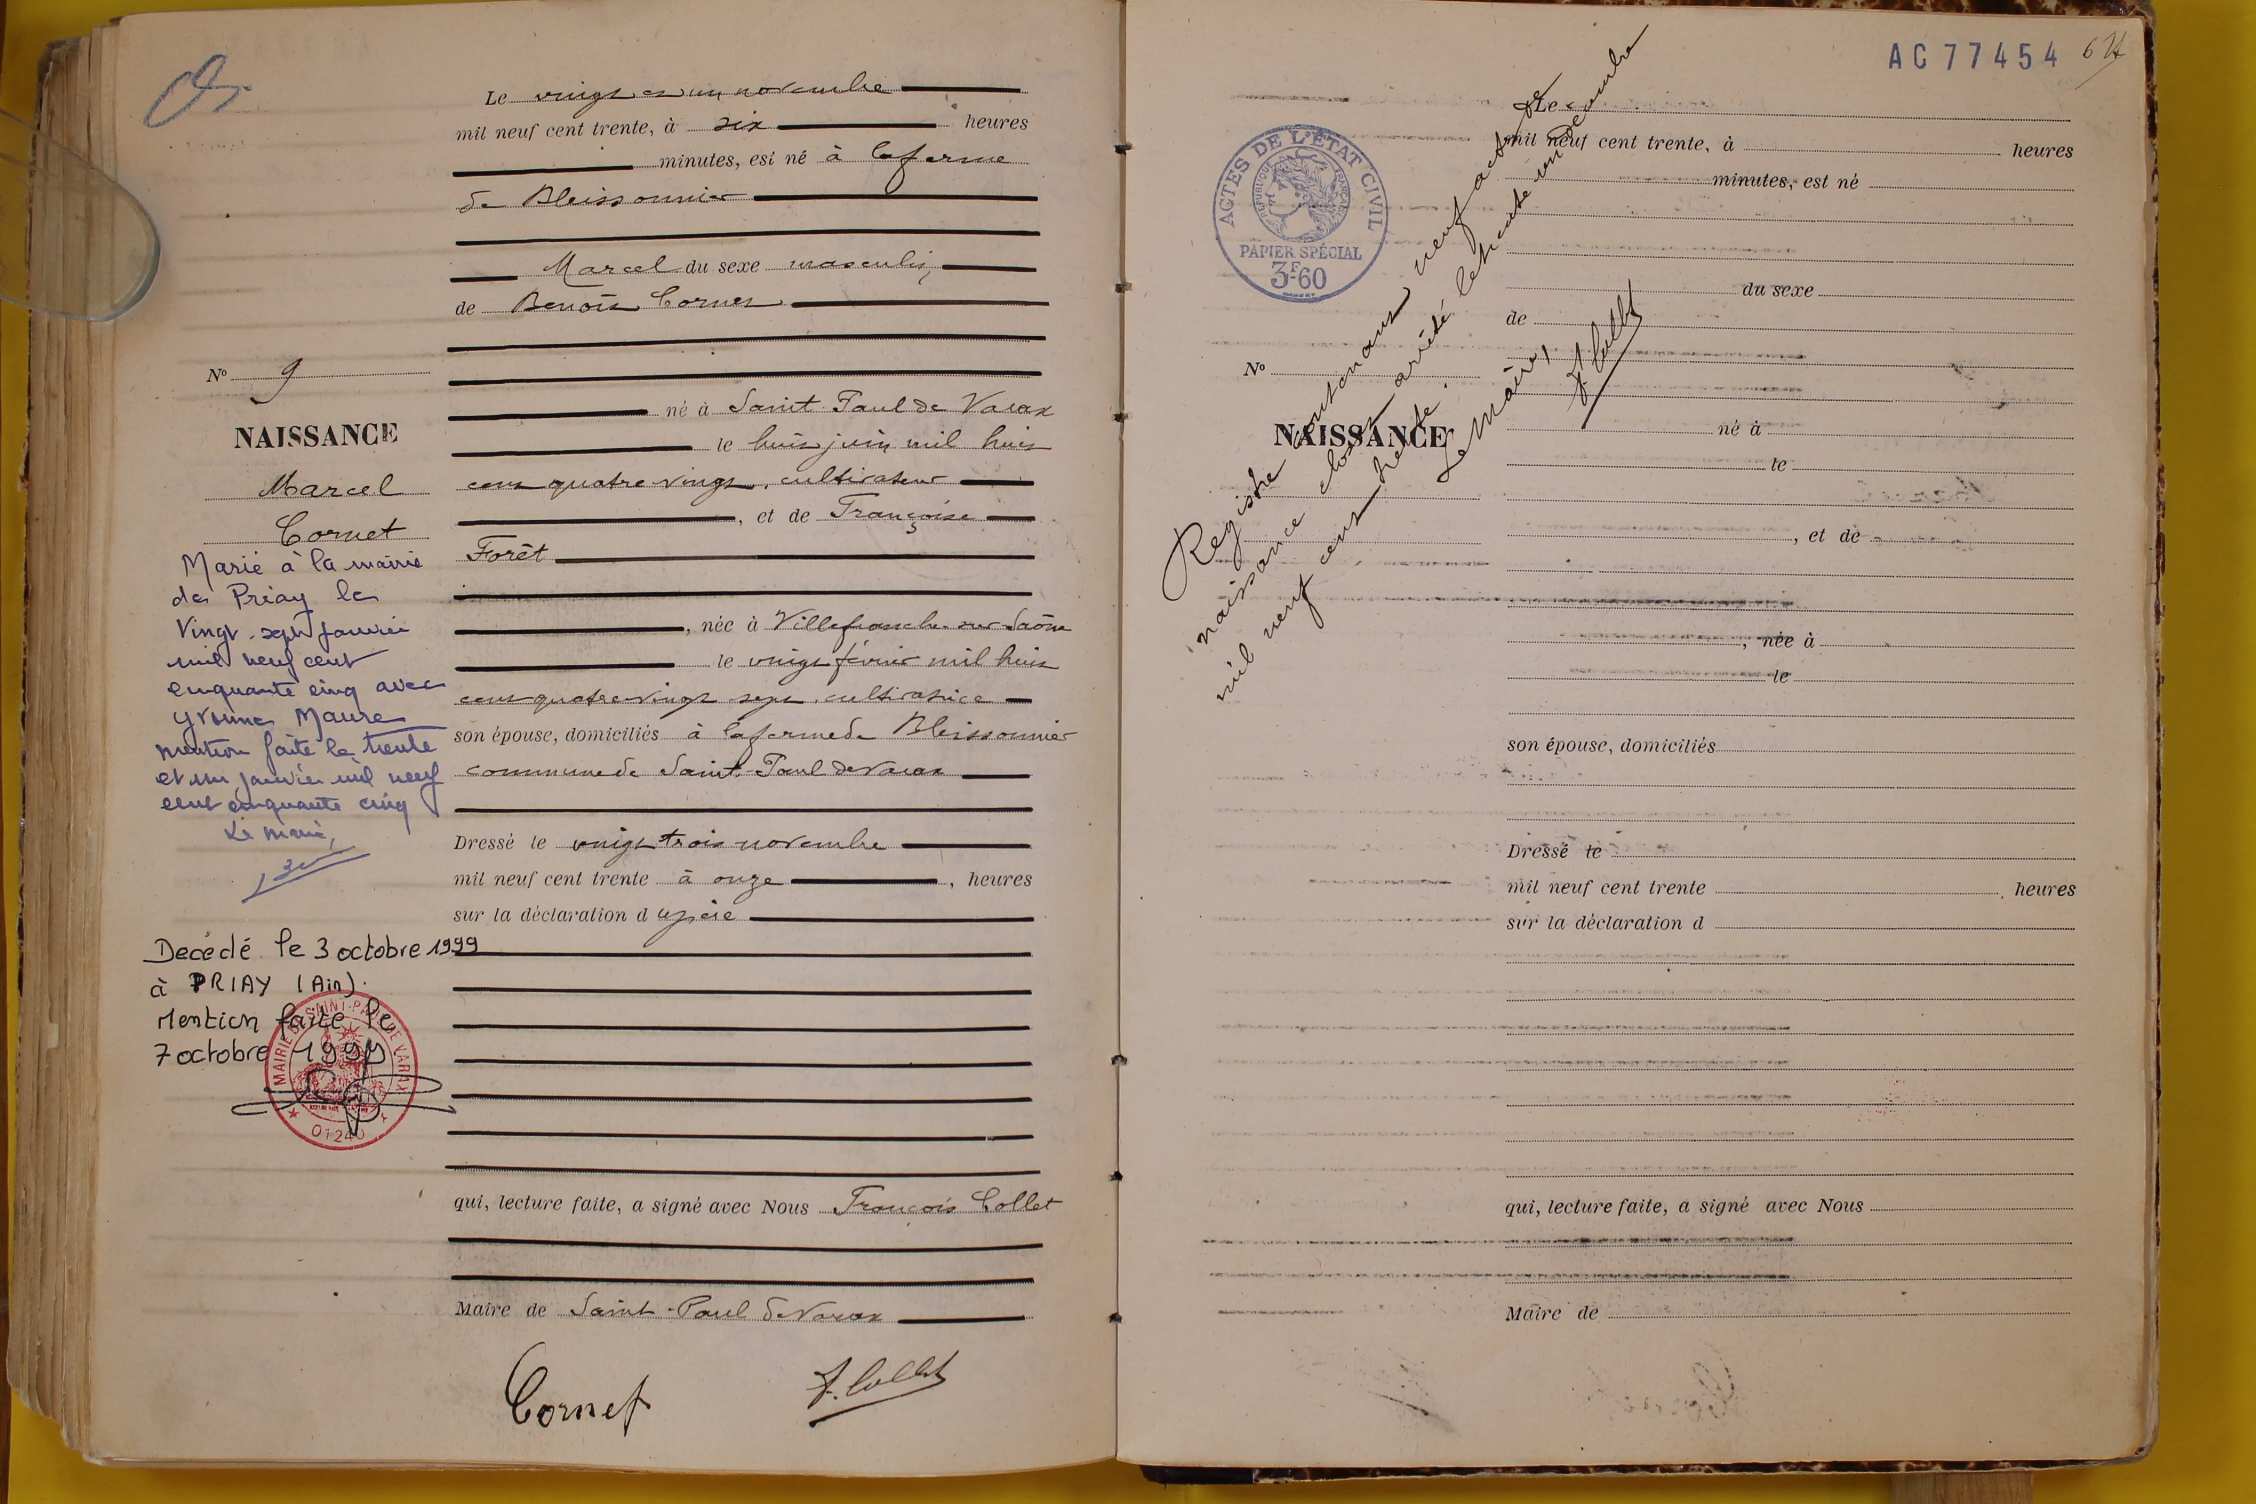 Le vingt et un novembre
mil neuf cent trente, à six heures
minutes, est né à la ferme
de Bleissonnier
Marcel du sexe masculin,
de Benoît Cornet
né à Saint-Paul de Varax
le huit juin mil huit
cent quatre vingt, cultivateur
, et de Françoise
Forêt
, née à Villefranche-sur-Saône
le vingt février mil huit
cent quatre vingt sept, cultivatrice
son épouse, domiciliés à la ferme de Bleissonnier
commune de Saint-Paul de Varax
Dressé le vingt trois novembre
mil neuf cent trente à onze , heures
sur la déclaration du père
qui, lecture faite, a signé avec Nous François Collet
Maire de Saint-Paul de Varax
Cornet
F. Collet
No 9
NAISSANCE
Marcel
Cornet
Marié à la mairie
de Priay le
Vingt-sept janvier
mil neuf cent
cinquante cinq avec
Yvonne Maure
mention faite le trente
et un janvier mil neuf
cent cinquante cinq
Le maire,
Décédé le 3 octobre 1999
à PRIAY (Ain).
Mention faite le
7 octobre 1999
MAIRIE DE SAINT-PAUL DE VARAX
01240
AC 77454
ACTES DE L'ÉTAT CIVIL
RÉPUBLIQUE FRANÇAISE
PAPIER SPÉCIAL
3F60
No
NAISSANCE
Registre contenant neuf actes de
naissance clos et arrêté le trente un décembre
mil neuf cent trente.
Le Maire,
F. Collet
Le
mil neuf cent trente, à heures
minutes, est né
du sexe
de
né à
le
, et de
, née à
le
son épouse, domiciliés
Dressé le
mil neuf cent trente , heures
sur la déclaration d
qui, lecture faite, a signé avec Nous
Maire de